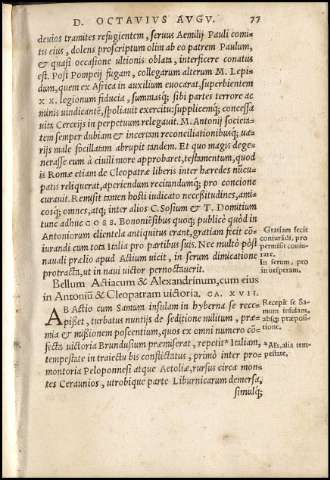 D. OCTAVIUS AVGV. 77
deuios tramites refugientem, seruus Aemilij Pauli comi-
tis eius, dolens proscriptum olim ab eo patrem Paulum,
& quasi occasione ultionis oblata, interficere conatus
est. Post Pompeij fugam, collegarum alterum M. Lepi-
dum, quem ex Africa in auxilium euocarat, superbientem
XX. legionum fiducia, summasq; sibi partes terrore ac
minis uindicantē, spoliauit exercitu: supplicemq; concessa
uita Cerceijs in perpetuum relegauit. M. Antonij societa-
tem semper dubiam & incertam reconciliationibusq; ua-
rijs male focillatam abrupit tandem. Et quo magis dege-
nerasse eum à ciuili more approbaret, testamentum, quod
is Romæ etiam de Cleopatræ liberis inter hæredes nūcu-
patis reliquerat, aperiendum recitandumq; pro concione
curauit. Remisit tamen hosti iudicato necesitudines, ami-
cosq; omnes, atq; inter alios C. Sosium & T. Domitium
tunc adhuc COSS. Bononiēsibus quoq; publicè quòd in
Antoniorum clientela antiquitus erant, gratiam fecit cō-
iurandi cum tota Italia pro partibus suis. Nec multò pōst
nauali prælio apud Actium uicit, in serum dimicatione
protracta, ut in naui uictor pernoctauerit.
Gratiam fecit
coniurādi, pro
permisit coniu-
rare.
In serum, pro
in uesperam.
Bellum Actiacum & Alexandrinum, cum eius
in Antoniū & Cleopatram uictoria, CA. XVII.
AB Actio cum Samum insulam in hyberna se rece-
pisset, turbatus nuntijs de seditione militum, præ-
mia & mißionem poscentium, quos ex omni numero cō-
fecta uictoria Brundusium præmiserat, repetit* Italiam,
tempestate in traiectu bis conflictatus, primò inter pro-
montoria Peloponnesi atque Aetoliæ, rursus circa mon-
tes Ceraunios, utrobique parte Liburnicarum demersa,
simulq;
Recepit se Sa-
mum insulam,
absq; præposi-
tione.
*Ali, alia tem-
pestate,